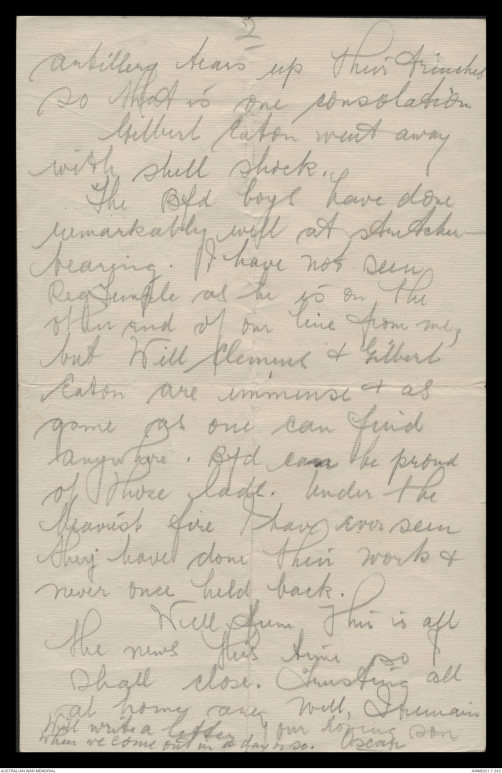 2
artillery tears up their trenches
so that is one consolation
Gilbert Eaton went away
with shell shock.
The Bfd boys have done
remarkably well at stretcher
bearing. I have not seen
Reg Temple as he is on the
other end of our line from me,
but Will Clemens & Gilbert
Eaton are immense & as
game as one can find
anywhere. Bfd can be proud
of those lads. Under the
heaviest fire I have ever seen
they have done their work &
never once held back.
Well Mum this is all
the news this time so I
shall close. Trusting all
at home are well, I remain
your loving son
Oscar
Will write a letter
when we come out in a day or so.
AUSTRALIAN WAR MEMORIAL